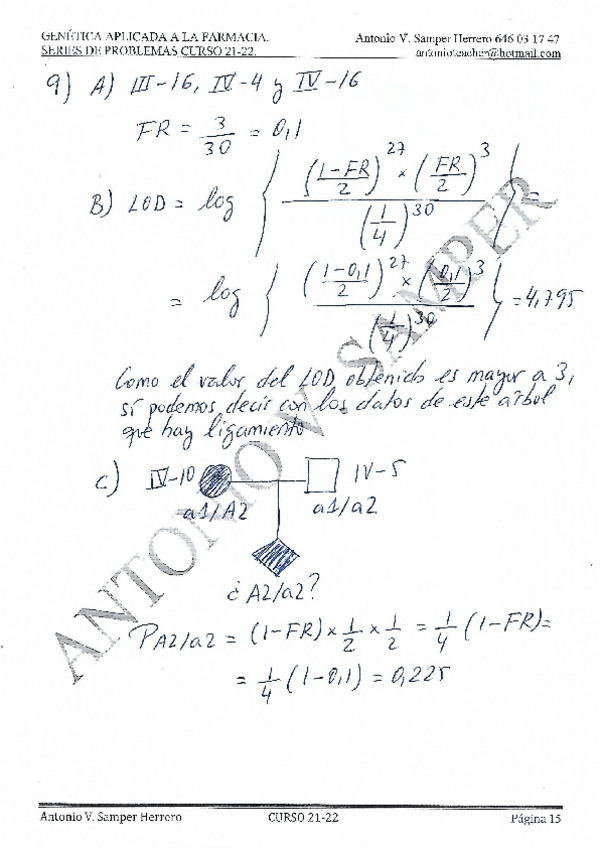 GENÉTICA APLICADA A LA FARMACIA. Antonio V. Samper Herrero 646 03 17 47
SERIES DE PROBLEMAS CURSO 21-22. antonioteacher@hotmail.com
9) A) III-16, IV-4 y IV-16
FR = 3/30 = 0,1
B) LOD = log { ((1-FR)/2)^27 × (FR/2)^3 / (1/4)^30 } =
= log { ((1-0,1)/2)^27 × (0,1/2)^3 / (1/4)^30 } = 4,795
Como el valor del LOD obtenido es mayor a 3,
sí podemos decir con los datos de este árbol
que hay ligamiento
C) IV-10 IV-5
a1/A2 a1/a2
¿A2/a2?
P A2/a2 = (1-FR) × 1/2 × 1/2 = 1/4 (1-FR) =
= 1/4 (1-0,1) = 0,225
ANTONIO V. SAMPER
Antonio V. Samper Herrero CURSO 21-22 Página 15